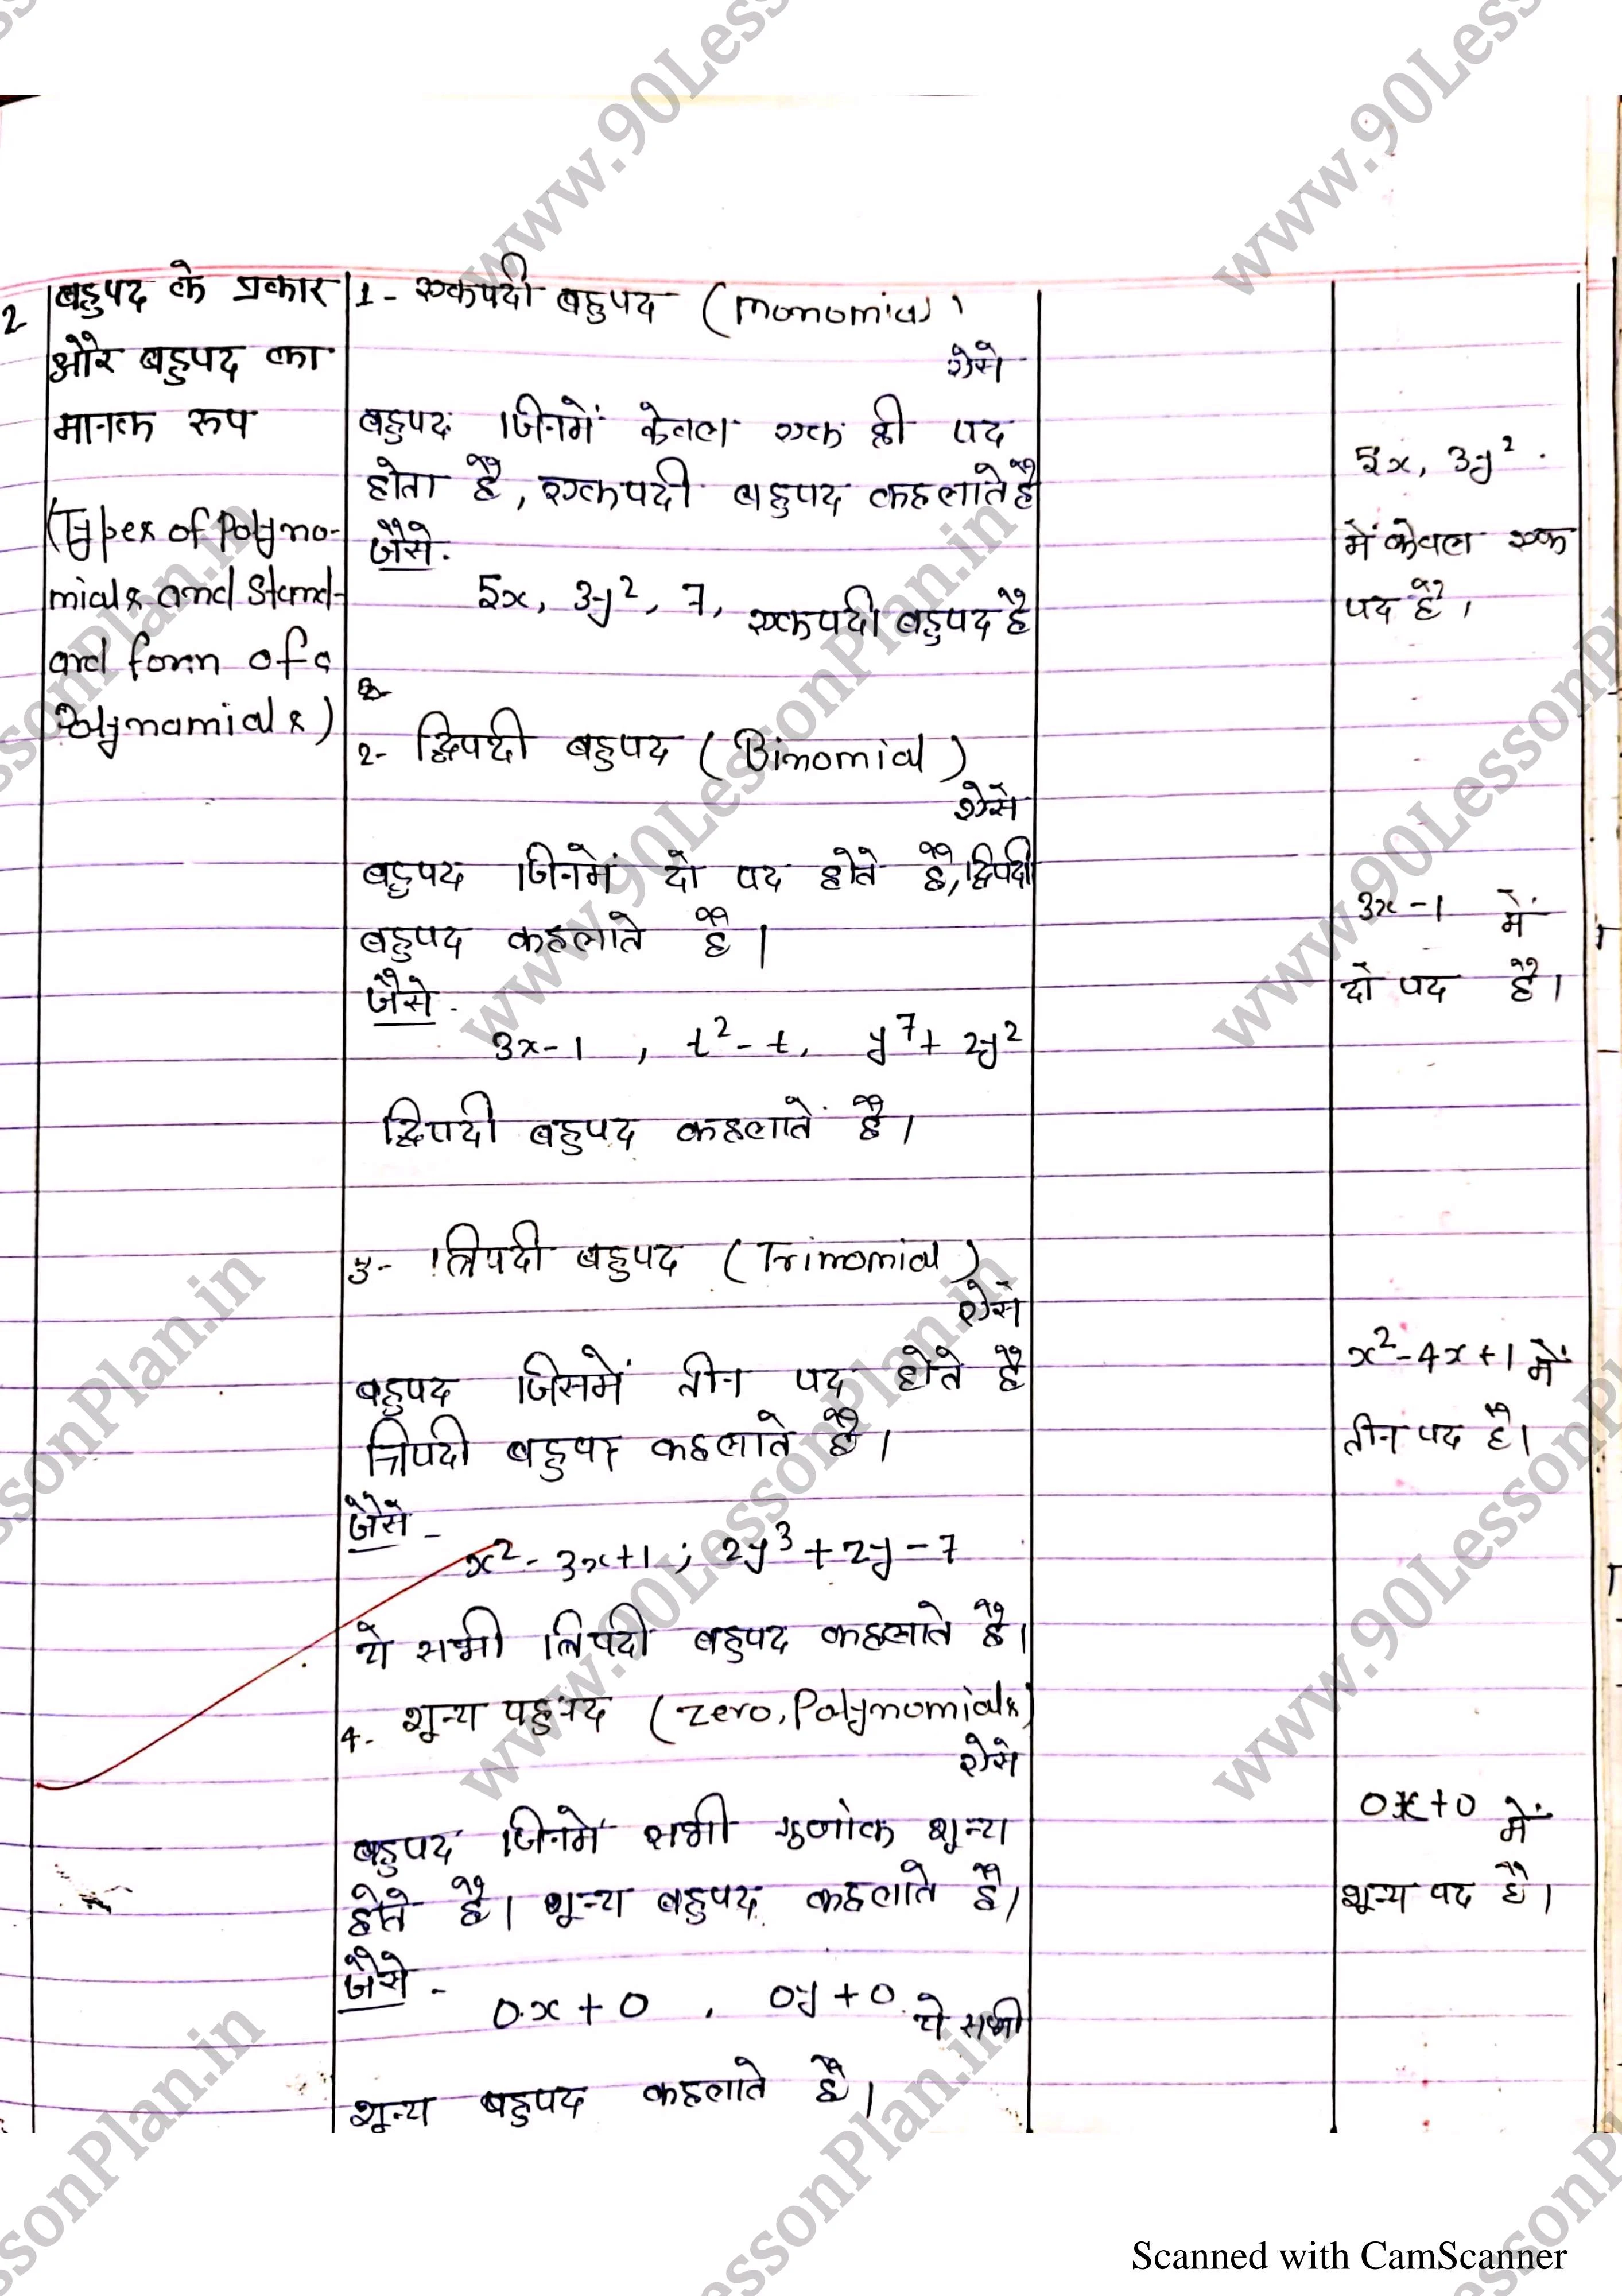 2
बहुपद के प्रकार
और बहुपद का
मानक रूप
(Types of Polyno-
mials and Stand-
ard form of a
Polynamials)
1- एकपदी बहुपद (Monomial)
ऐसे
बहुपद जिनमें केवल एक ही पद
होता है, एकपदी बहुपद कहलाते है
जैसे.
5x, 3y², 7, एकपदी बहुपद है
2- द्विपदी बहुपद (Binomial)
ऐसे
बहुपद जिनमें दो पद होते है, द्विपदी
बहुपद कहलाते है।
जैसे.
3x-1 , t²-t, y⁷+2y²
द्विपदी बहुपद कहलाते है।
3- त्रिपदी बहुपद (Trinomial)
ऐसे
बहुपद जिसमें तीन पद होते है
त्रिपदी बहुपद कहलाते है।
जैसे -
x²-3x+1 ; 2y³+2y-7
ये सभी त्रिपदी बहुपद कहलाते है।
4- शून्य पहुपद (zero, Polynomials)
ऐसे
बहुपद जिनमे सभी गुणांक शून्य
होते है। शून्य बहुपद कहलाते है।
जैसे -
0.x+0 , 0y+0. ये सभी
शून्य बहुपद कहलाते है।
5x, 3y².
में केवल एक
पद है।
3x-1 में
दो पद है।
x²-4x+1 में
तीन पद है।
0x+0 में
शून्य पद है।
www.90LessonPlan.in
Scanned with CamScanner